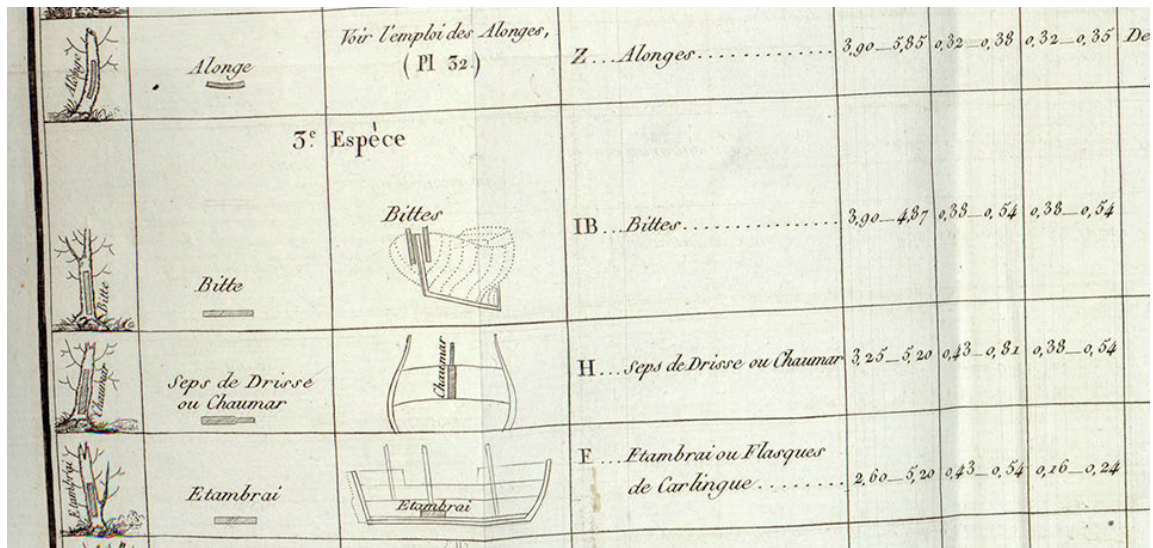 Alonge
Alonge
Voir l'emploi des Alonges,
(Pl 32.)
Z...Alonges..............
3,90_5,85
0,32_0,38
0,32_0,35
De
3.e Espèce
Bitte
Bitte
Bittes
IB...Bittes.................
3,90_4,87
0,38_0,54
0,38_0,54
Chaumar
Seps de Drisse
ou Chaumar
Chaumar
H...Seps de Drisse ou Chaumar
3,25_5,20
0,43_0,81
0,38_0,54
Etambrai
Etambrai
Etambrai
F...Etambrai ou Flasques
de Carlingue........
2,60_5,20
0,43_0,54
0,16_0,24